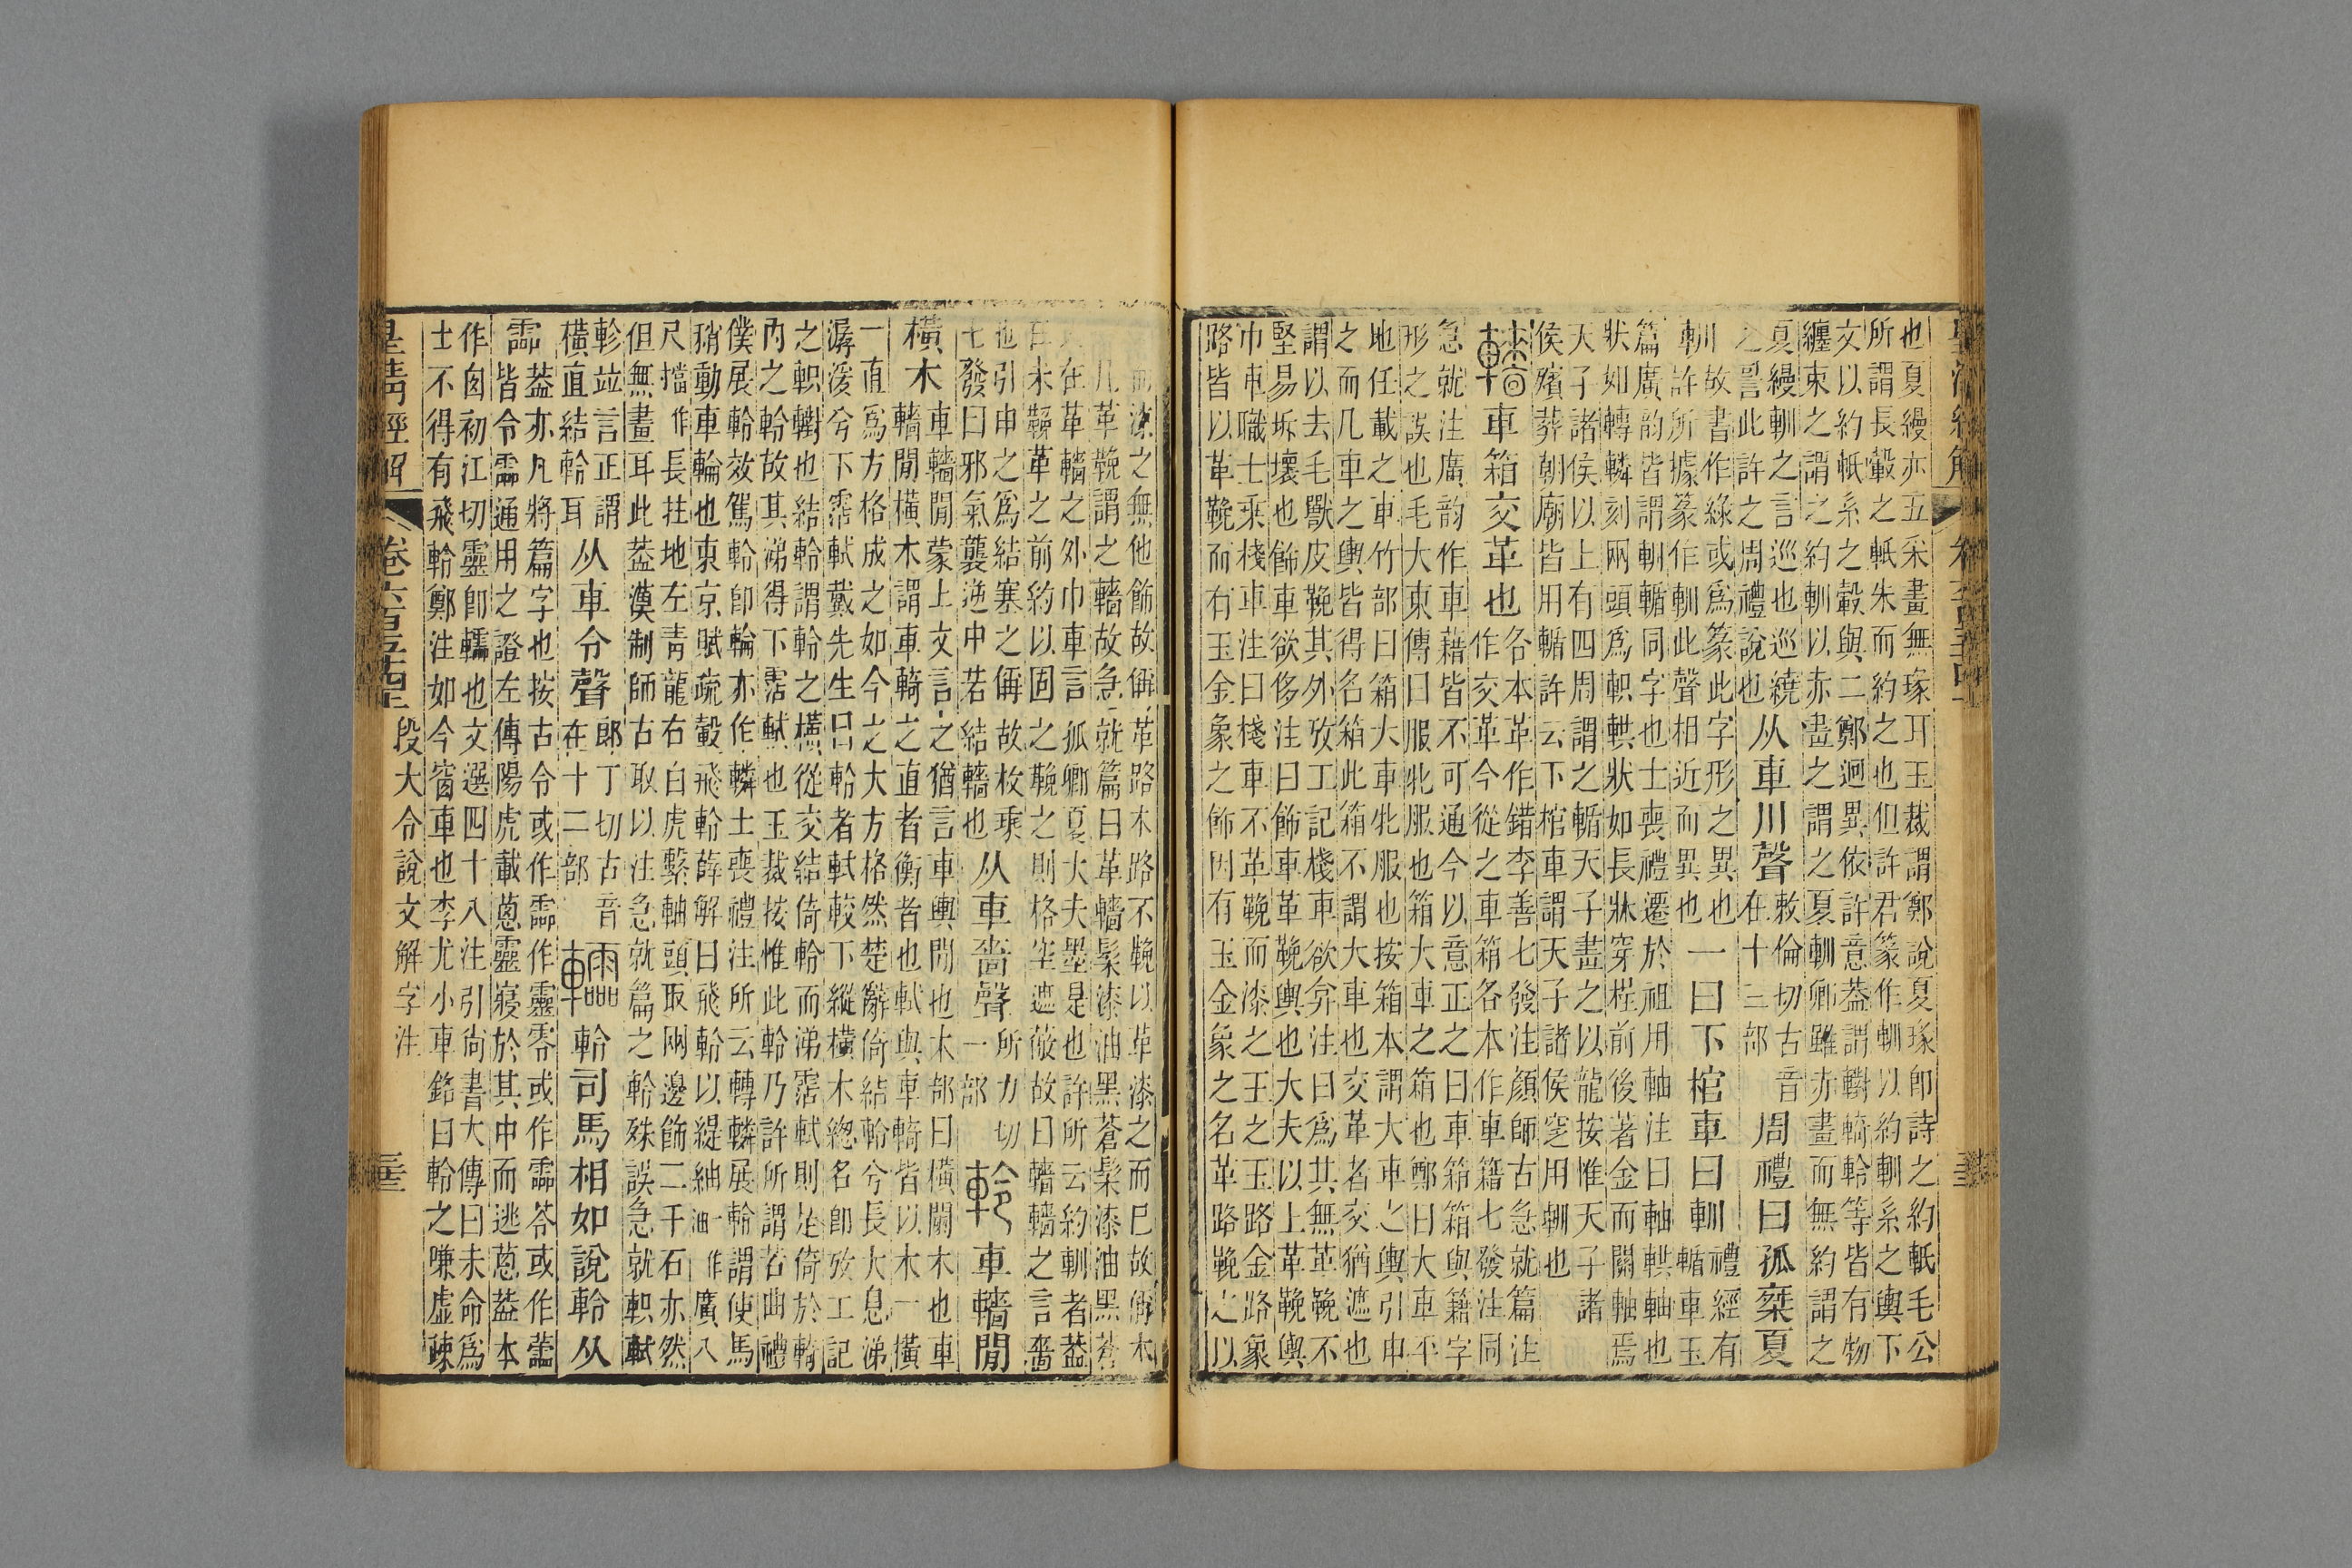 皇清經解 卷六百五十四
也夏縵亦五采畫無瑑耳玉裁謂鄭說夏瑑卽詩之約軝毛公
所謂長轂之軝朱而約之也但許君篆作䡅以約䡅系之輿下
交以約軝系之轂與二鄭迥異依許意葢謂轛輢軨等皆有物
纏束之謂之約䡅以亦畫之謂之夏䡅卿雖亦畫而無約謂之
夏縵䡅之言巡也巡繞
之䛐此許之周禮說也
从車川聲
敕倫切古音
在十三部
周禮曰孤桒夏
䡅
故書作緣或爲篆此字形之異也
許所據篆作䡅此聲相近而異也
一曰下棺車曰䡅
禮經有
輴車玉
篇廣韵皆謂䡅輴同字也士喪禮遷於祖用軸注曰軸輁軸也
狀如轉轔刻兩頭爲軹輁狀如長牀穿桯前後著金而關軸焉
天子諸侯以上有四周謂之輴天子畫之以龍按惟天子諸
侯殯葬朝廟皆用輴許云下棺車謂天子諸侯窆用䡅也
轖 車箱交革也
各本革作錯李善七發注顏師古急就篇注
作交革今從之車箱各本作車籍七發注同
急就注廣韵作車藉皆不可通今以意正之曰車箱箱與籍字
形之誤也毛大東傳曰服牝服也箱大車之箱也鄭曰大車平
地任載之車竹部曰箱大車牝服也按箱本謂大車之輿引申
之而凡車之輿皆得名箱此箱不謂大車也交革者交猶遮也
謂以去毛獸皮鞔其外攷工記棧車欲弇注曰爲其無革鞔不
堅易坼壞也飾車欲侈注曰飾車革鞔輿也大夫以上革鞔輿
巾車職士乘棧車注曰棧車不革鞔而漆之王之玉路金路象
路皆以革鞔而有玉金象之飾因有玉金象之名革路鞔之以
而漆之無他飾故偁革路木路不鞔以革漆之而已故偁木
凡革鞔謂之轖故急就篇曰革轖髹漆油黑蒼髹漆油黑蒼
在革轖之外巾車言孤卿夏大夫墨是也許所云約䡅者葢
在未鞔革之前約以固之鞔之則格空遮蔽故曰轖轖之言嗇
也引申之爲結塞之偁故枚乘
七發曰邪氣襲逆中若結轖也
从車嗇聲
所力切
一部
軨 車轖閒
橫木
車轖閒蒙上文言之猶言車輿閒也木部曰橫闌木也車
轖閒橫木謂車輢之直者衡者也軾與車輢皆以木一橫
一直爲方格成之如今之大方格然楚辭倚結軨兮長大息涕
潺湲兮下霑軾戴先生曰軨者軾較下縱橫木緫名卽攷工記
之軹轛也結軨謂軨之橫從交結倚軨而涕霑軾則是倚於輢
內之軨故其涕得下霑軾也玉裁按惟此軨乃許所謂若曲禮
僕展軨效駕軨卽輪亦作轔士喪禮注所云轉轔展軨謂使馬
稍動車輪也東京賦疏轂飛軨薛解曰飛軨以緹紬一作廣八
尺擋作長拄地左青龍右白虎繫軸頭取兩邊飾二千石亦然
但無畫耳此葢漢制師古取以注急就篇之軨殊誤急就軹軾
軫竝言正謂
橫直結軨耳
从車令聲
郎丁切古音
在十二部
軨司馬相如說軨从
霝
葢亦凡將篇字也按古令或作霝作靈零或作霝苓或作蘦
皆令霝通用之證左傳陽虎載蔥靈寢於其中而逃蔥葢本
作囪初江切靈卽轜也文選四十八注引尚書大傳曰未命爲
士不得有飛軨鄭注如今窗車也李尤小車銘曰軨之嗛虛疎
皇清經解 卷六百五十四 段大令說文解字注